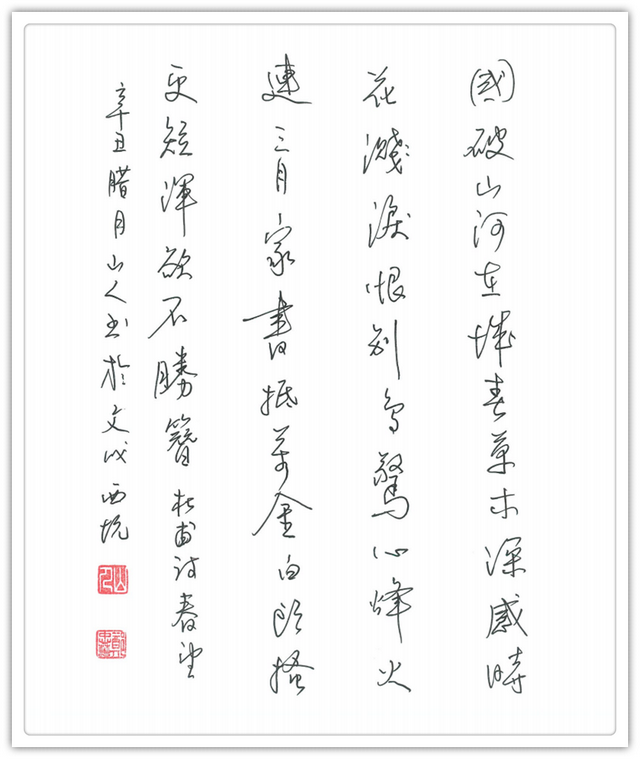 國破山河在城春草木深感時
花濺淚恨別鳥驚心烽火
連三月家書抵萬金白頭搔
更短渾欲不勝簪 杜甫詩春望
辛丑腊月山人书於文成西坑
山人